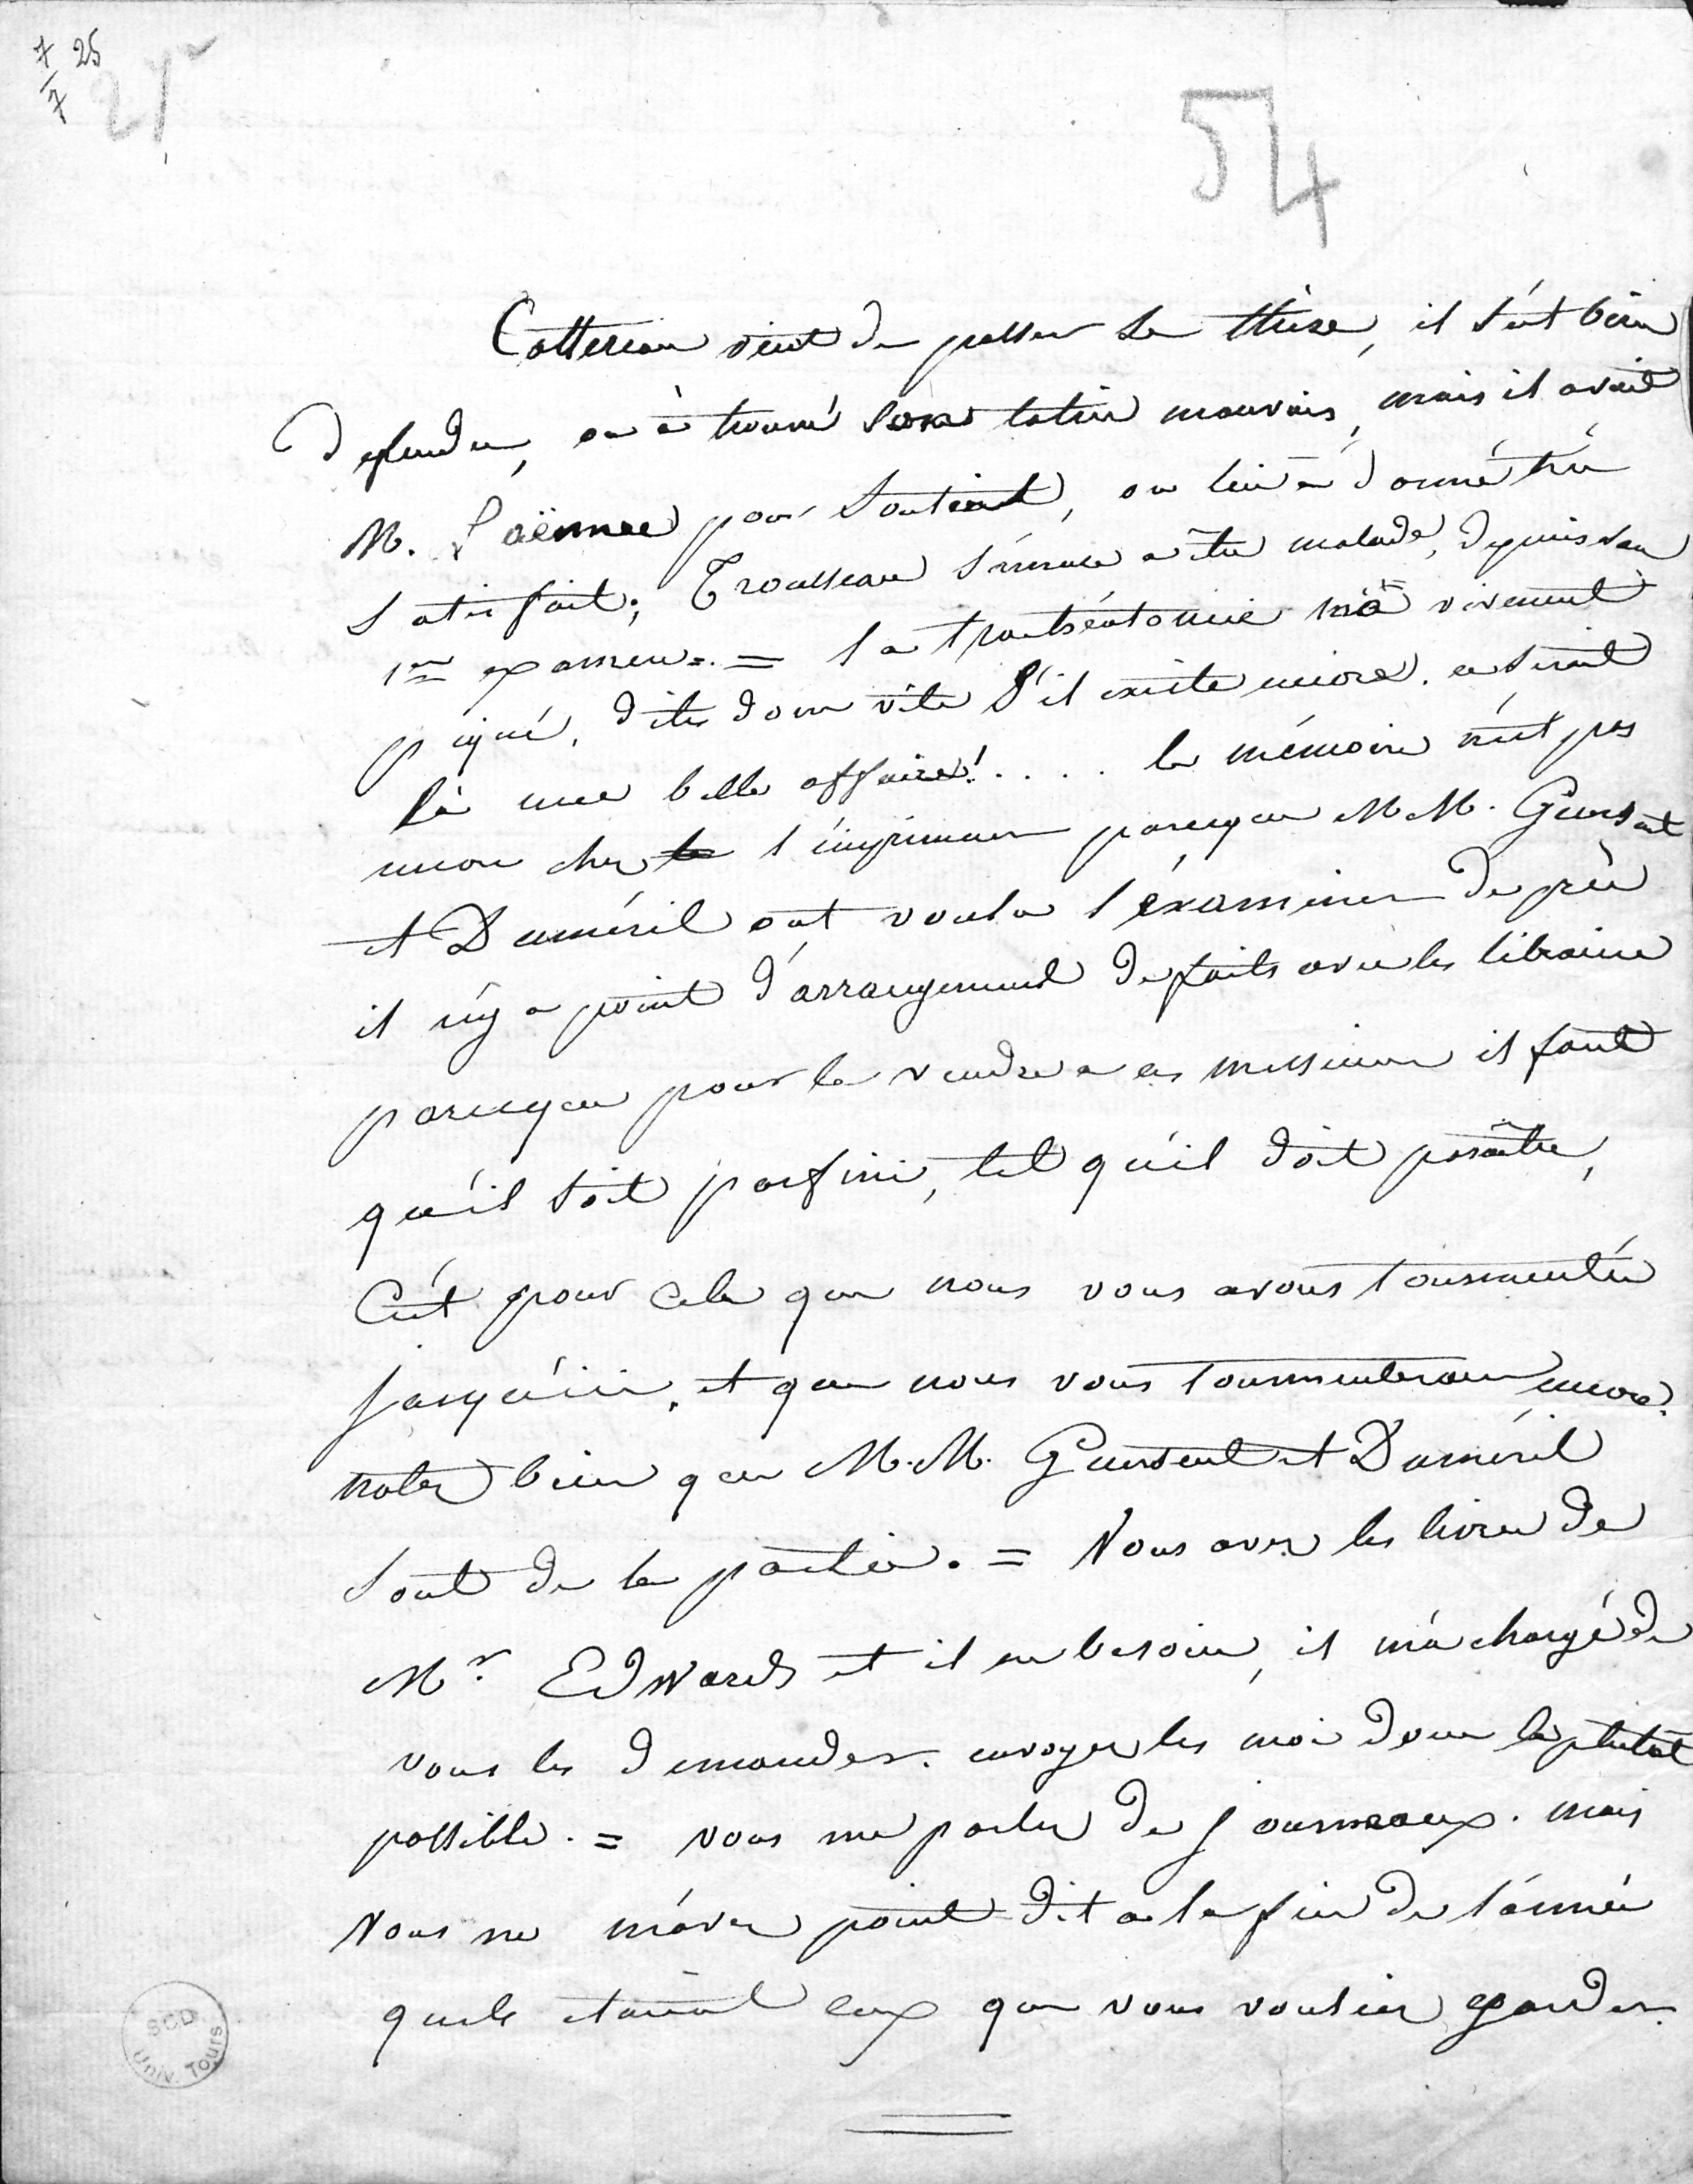 7 25
7
27
54
Cottereau vient de passer sa thèse, il s'est bien
defendu, on à trouvé son latin mauvais, mais il avait
M. Laënnec pour soutient, on lui a donné très
satisfait; Trousseau s'ennuie a être malade, depuis son
1er examen. = la m'a vivement
piqué, dites donc vite s'il existe encore. ce serait
là une belle affaire!.... le mémoire n'est pas
encore chez l'imprimeur parceque M.M. Guersent
et Duméril ont voulu l'éxaminer de près
il n'y a point d'arrangement de faits avec les libraires
parceque pour le vendre a ces messieurs il faut
qu'il soit parfini, tel qu'il doit paraître,
C'est pour cela que nous vous avons tourmentés
jusqu'ici, et que nous vous tourmenterons encore.
notez bien que M.M. Guersent et Duméril
sont de la partie. = Vous avez les livres de
Mr. Edwards et il en besoin, il m'a chargé de
vous les demander. envoyez les moi donc le plutôt
possible. = vous me parlez de journeaux. mais
Vous ne m'avez point dit a la fin de l'année
quels etaient ceux que vous vouliez garder.
SCD
Univ. Tours